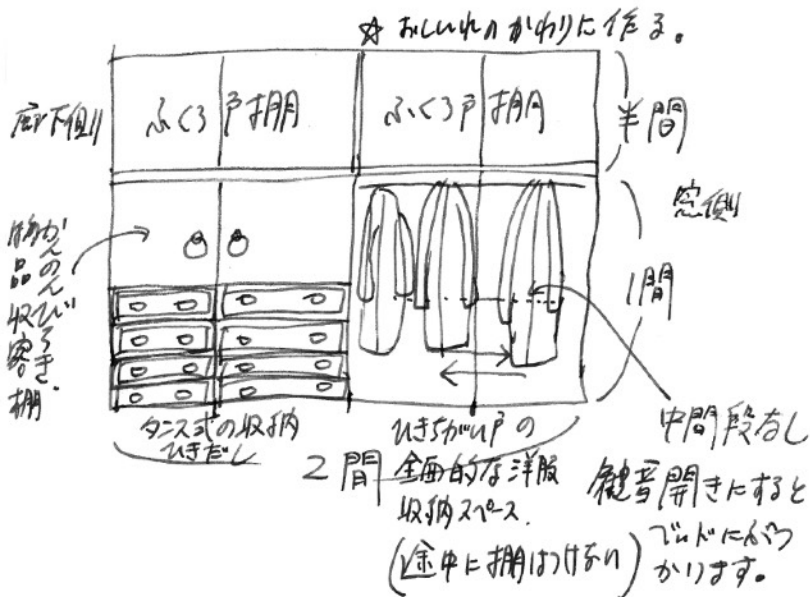 ☆ おしいれのかわりに作る。
廊下側
ふくろ戸棚
ふくろ戸棚
半間
窓側
かんのんびらき.
物品収容棚
1間
タンス式の収納
ひきだし
2間
ひきちがい戸の
全面的な洋服
収納スペース.
(途中に棚はつけない)
中間段なし
観音開きにすると
ベッドにぶつ
かります。